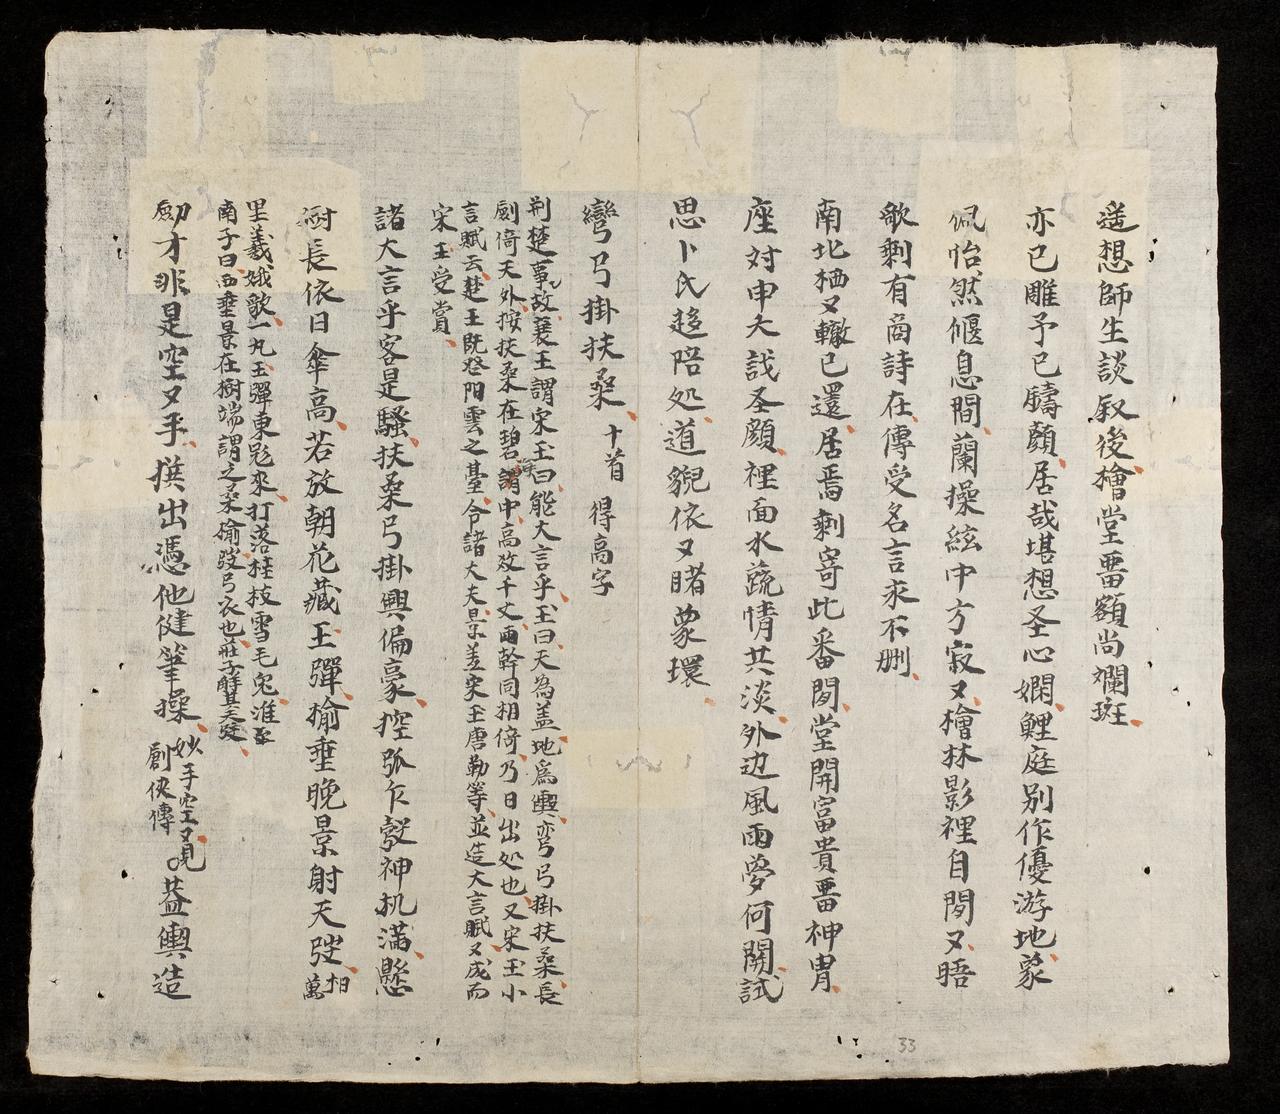 遥想師生談叙後檜堂畨額尚斕斑
亦已雕予已鑄顏居哉堪想圣心嫻鯉庭别作優游地蒙
佩怡然偃息間蘭操絃中方寂又檜林影裡自閒又晤
歌剩有商詩在傳受名言求不刪
南北栖又轍已還居焉剩寄此番閒堂開富貴畨神胃
座対申夭戠圣顔裡面水蔬情共淡外边風雨夢何關試
思卜氏趍陪処道貌依又睹蒙環
彎弓掛扶桑 十首 得高字
荆楚事故襄王謂宋玉曰能大言乎玉曰天為盖地爲輿弯弓掛扶桑長
劍倚天外按扶桑在碧海中高数千丈両幹同相倚乃日出処也又宋玉小
言賦云楚王既登阳雲之䑓令諸大夫景差宋玉唐勒等並造大言賦又成而
宋玉受賞
諸大言乎客是騷扶桑弓掛興偏豪控弧乍彀神机滿懸
澍長依日傘高若放朝花藏玉彈揄垂晩景射天弢 相萬
里羲娥歌一丸玉彈東髟來打落桂枝雪毛兔淮
南子曰西垂景在樹端謂之桑揄弢弓衣也莊子解其天弢
劒才非是空又手撰出凴他健筆操 妙手空又見劍侠傳 葢輿造